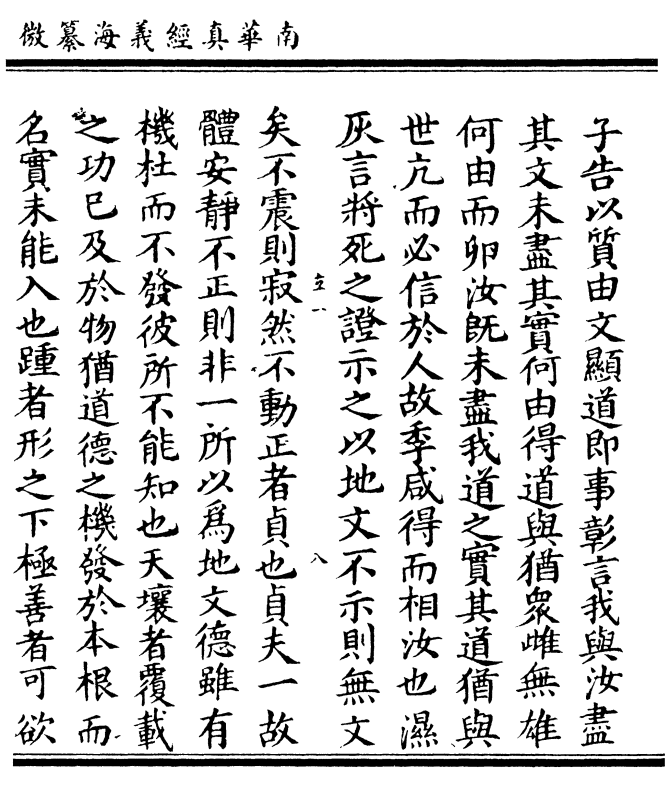 南華真經義海纂微
子告以質由文顯道即事彰言我與汝盡
其文未盡其實何由得道與猶衆雌無雄
何由而卵汝旣未盡我道之實其道猶與
世亢而必信於人故季咸得而相汝也濕
灰言將死之證示之以地文不示則無文
矣不震則寂然不動正者貞也貞夫一故
體安靜不正則非一所以爲地文德雖有
機杜而不發彼所不能知也天壤者覆載
之功已及於物猶道德之機發於本根而
名實未能入也踵者形之下極善者可欲
八